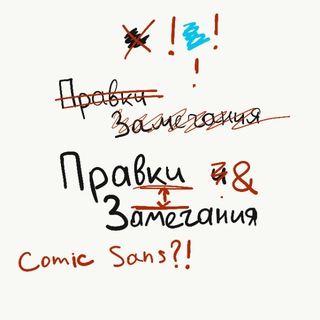 ! !
!
Правки
Замечания
Правки и &
Замечания
Comic Sans?!